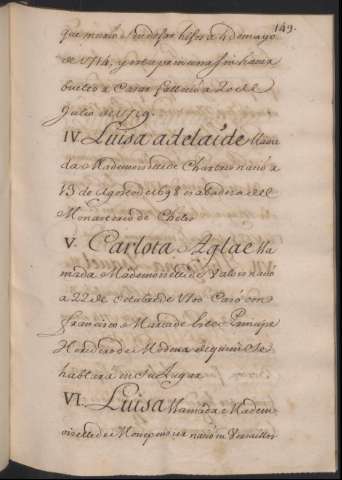 149.
que murio sin dejar hijos a 4 de mayo
de 1714, y esta princesa sin haver
buelto a Casar falleció a 20 de
Julio de 1719.
IV. Luisa adelaide llama
da Mademoiselle de Chartres nació a
13 de Agosto de 1698 es abadesa del
Monasterio de Cheles
V. Carlota Aglae lla
mada Mademoiselle de Valois nació
a 22 de octubre de 1700 Casó con
Francisco Maria de Este Principe
Heredero de Modena de quien se
hablará en su lugar
VI. Luisa llamada Madem
oiselle de Monpensier nació en Versailles